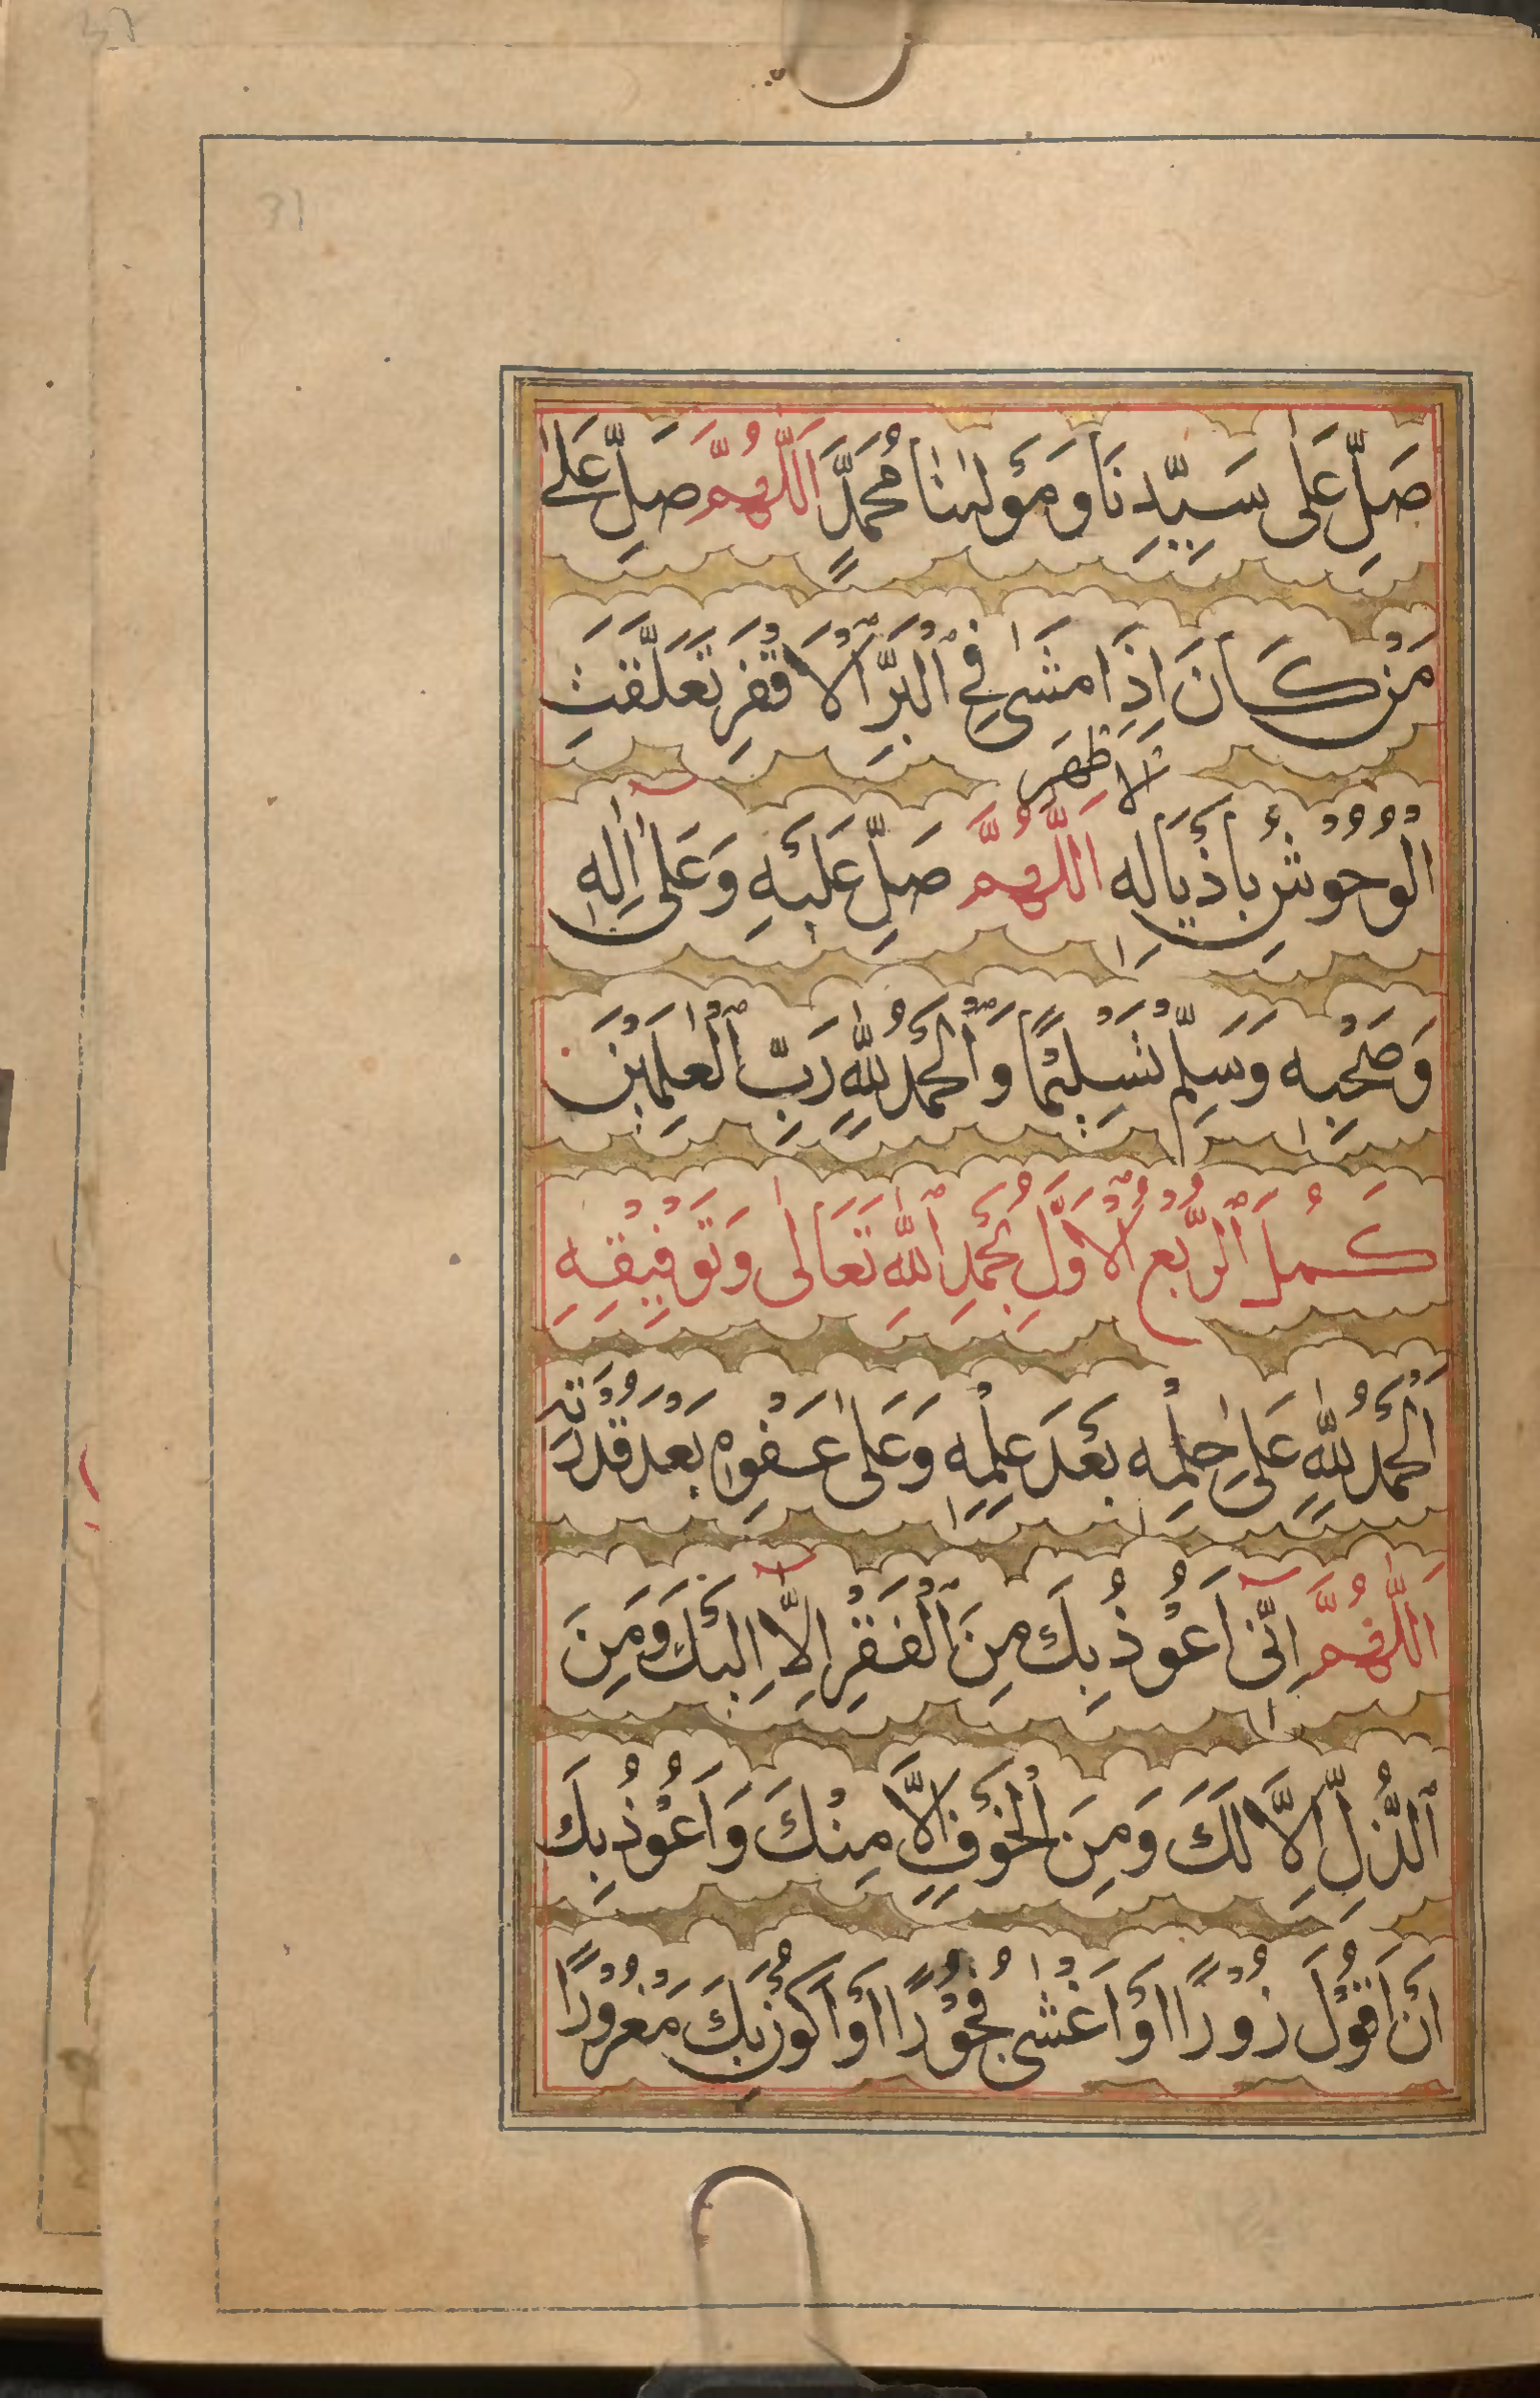 صَلِّ عَلٰى سَيِّدِنَا وَمَوْلٰىنَا مُحَمَّدٍ اَللّٰهُمَّ صَلِّ عَلٰى
مَنْ كَانَ اِذَا مَشٰى فِي الْبَرِّ الْاَقْفَرِ تَعَلَّقَتِ
الْاَظْهَرِ
الْوُحُوْشُ بِاَذْيَالِهٖ اَللّٰهُمَّ صَلِّ عَلَيْهِ وَعَلٰٓى اٰلِهٖ
وَصَحْبِهٖ وَسَلِّمْ تَسْلِيْمًا وَّالْحَمْدُ لِلّٰهِ رَبِّ الْعٰلَمِيْنَ
كَمُلَ الرُّبْعُ الْاَوَّلُ بِحَمْدِ اللّٰهِ تَعَالٰى وَتَوْفِيْقِهِ
اَلْحَمْدُ لِلّٰهِ عَلٰى حِلْمِهٖ بَعْدَ عِلْمِهٖ وَعَلٰى عَفْوِهٖ بَعْدَ قُدْرَتِهٖ
اَللّٰهُمَّ اِنِّيٓ اَعُوْذُ بِكَ مِنَ الْفَقْرِ اِلَّآ اِلَيْكَ وَمِنَ
الذُّلِّ اِلَّا لَكَ وَمِنَ الْخَوْفِ اِلَّا مِنْكَ وَاَعُوْذُ بِكَ
اَنْ اَقُوْلَ زُوْرًا اَوْ اَغْشٰى فُجُوْرًا اَوْ اَكُوْنَ بِكَ مَغْرُوْرًا
31